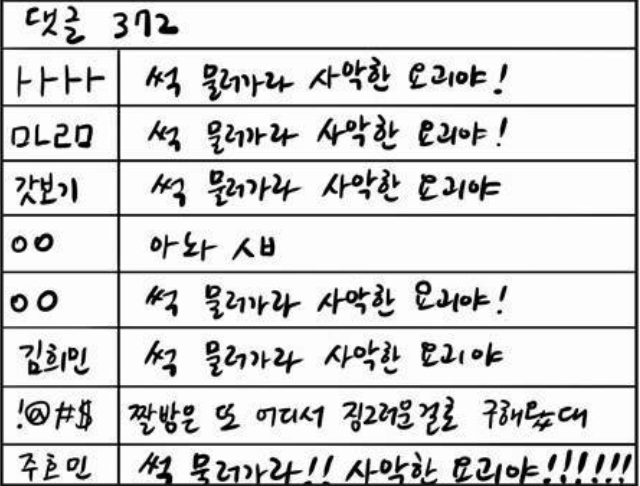 댓글 372
ㅏㅏㅏㅏ 썩 물러가라 사악한 요괴야!
ㅁㄴㄹㅁ 썩 물러가라 사악한 요괴야!
갓보기 썩 물러가라 사악한 요괴야
ㅇㅇ 아놔 ㅅㅂ
ㅇㅇ 썩 물러가라 사악한 요괴야!
김희민 썩 물러가라 사악한 요괴야
!@#$ 짤방은 또 어디서 징그러운걸로 구해왔대
주호민 썩 물러가라!! 사악한 요괴야!!!!!!